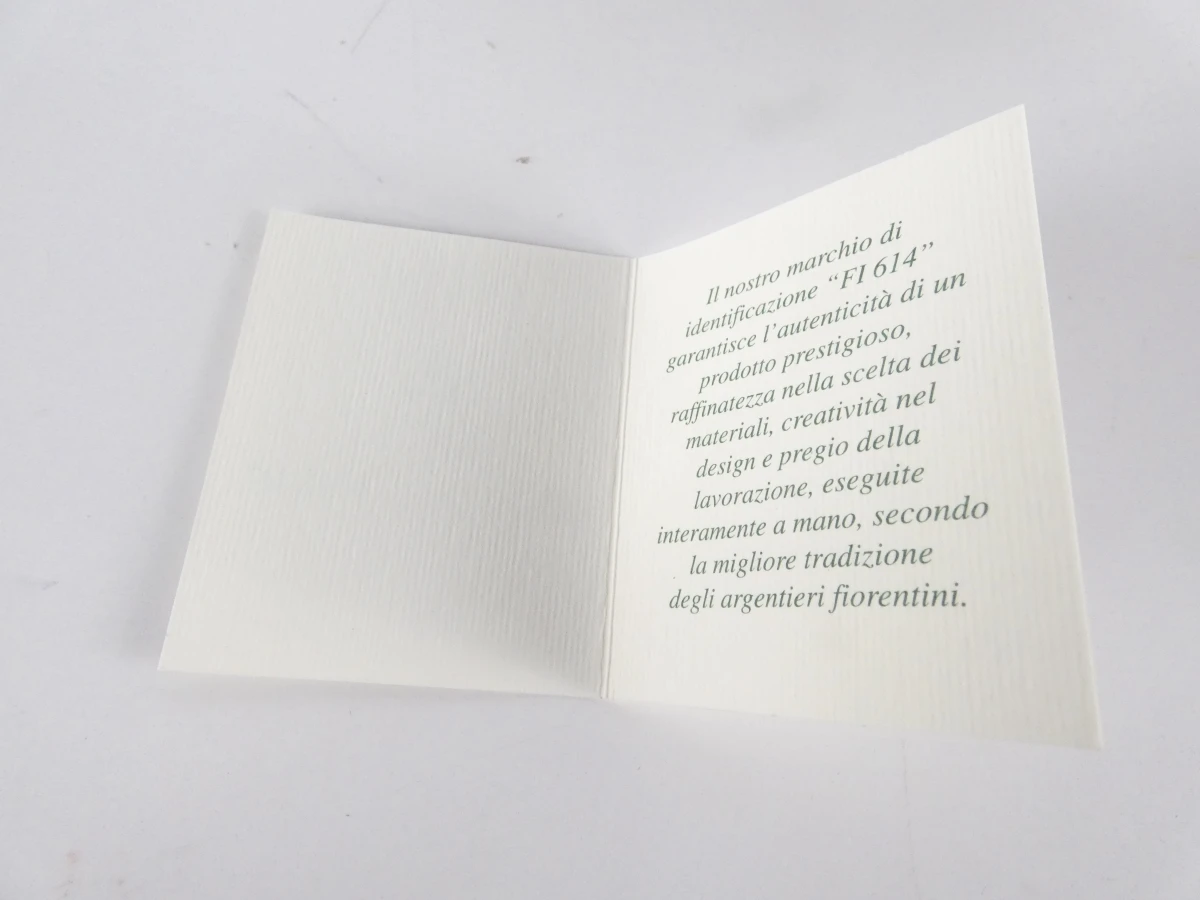 Il nostro marchio di
identificazione “FI 614”
garantisce l’autenticità di un
prodotto prestigioso,
raffinatezza nella scelta dei
materiali, creatività nel
design e pregio della
lavorazione, eseguite
interamente a mano, secondo
la migliore tradizione
degli argentieri fiorentini.